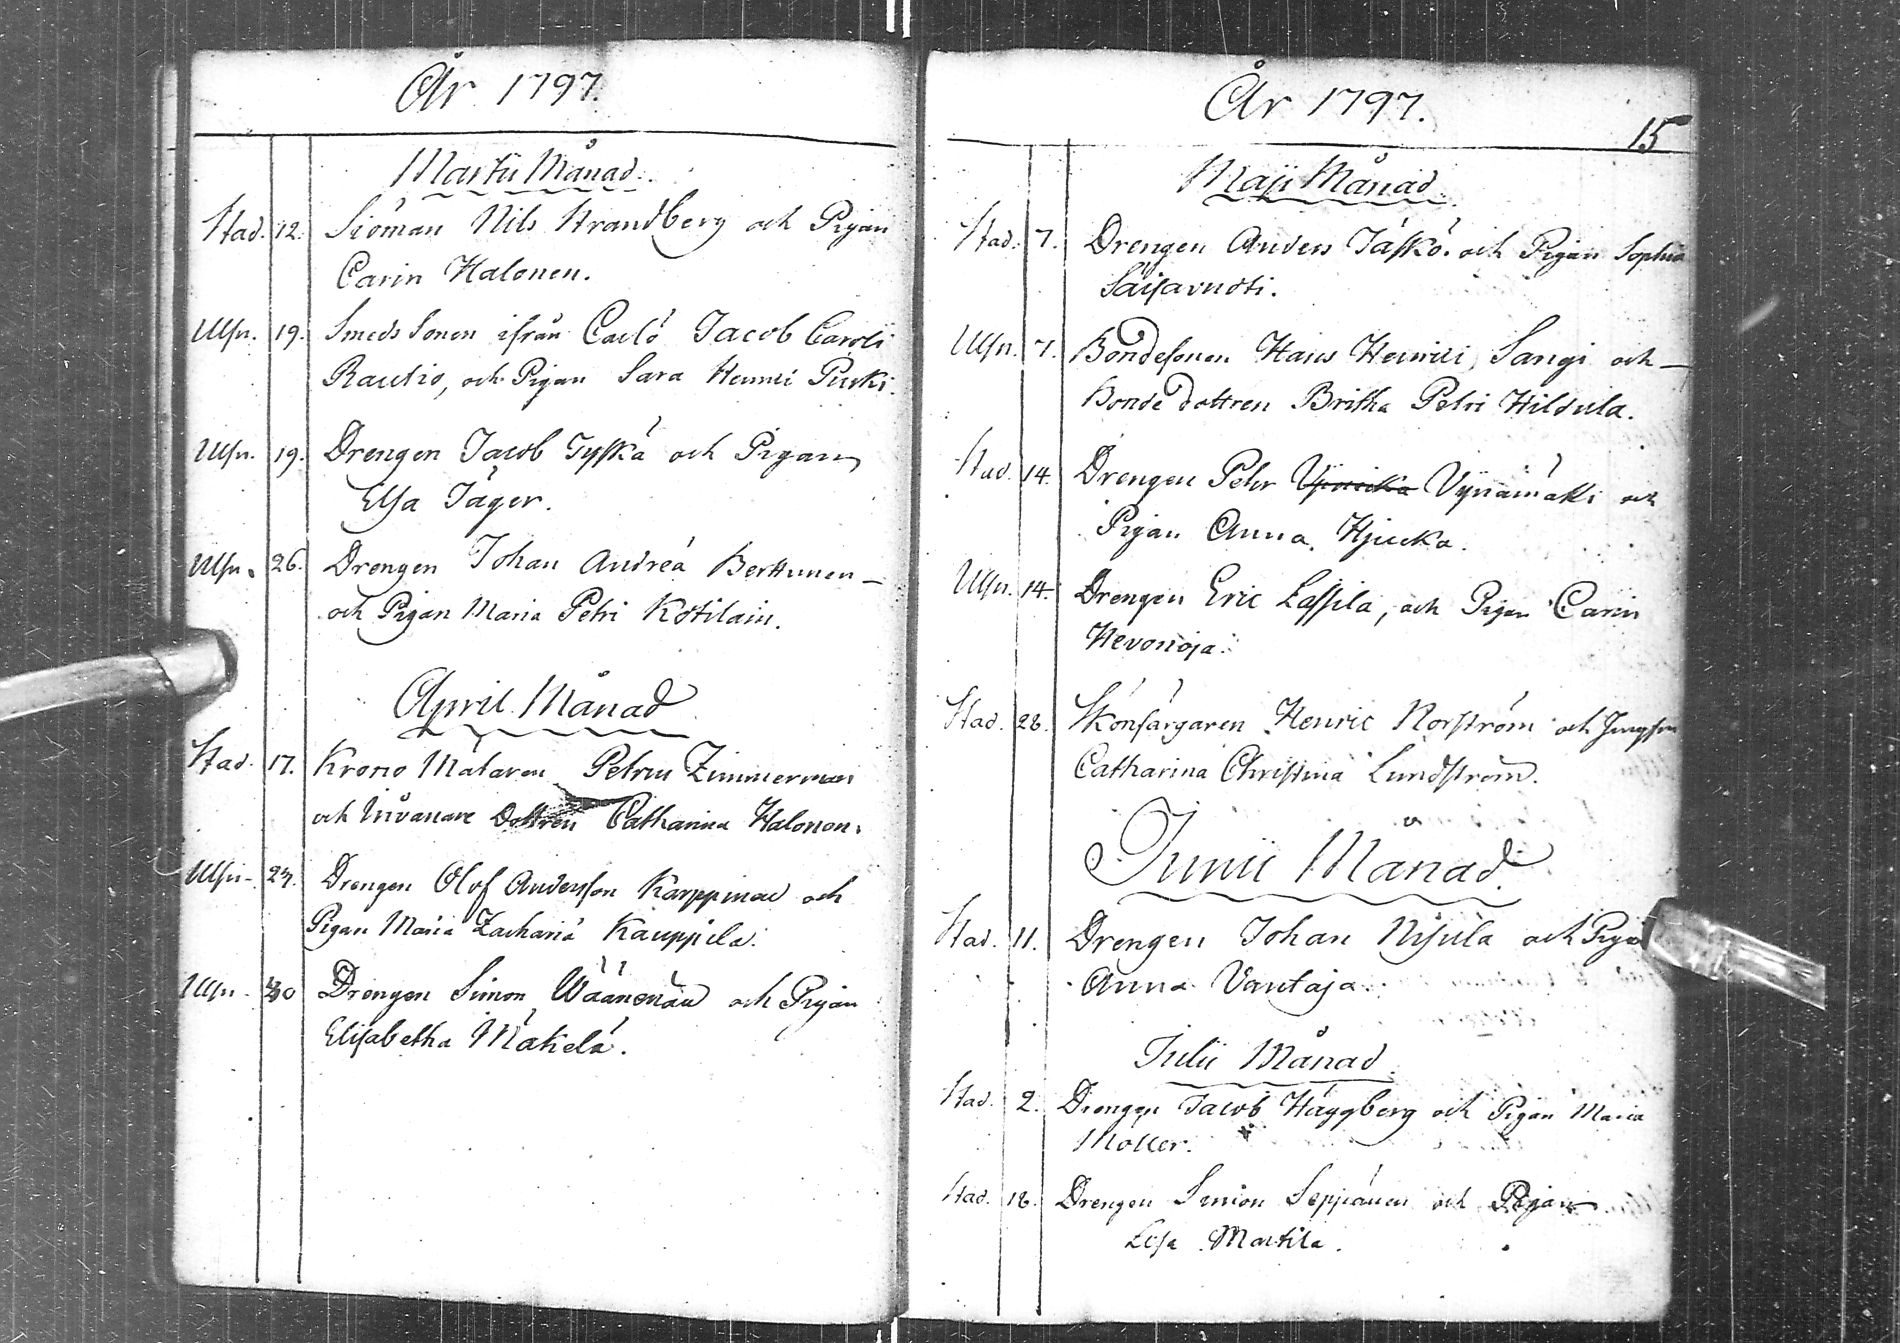 År 1797.
Martii Månad.
Stad. 12. Siöman Nils Strandberg och Pigan
Carin Halonen.
Ulfn. 19. Smeds Sonen ifrån Carlö Jacob Caroli
Rautio, och Pigan Sara Henrici Purki.
Ulfn. 19. Drengen Jacob Tyskä och Pigan
Elsa Jäger.
Ulfn. 26. Drengen Johan Andreä Berttunen
och Pigan Maria Petri Kotilain.
April Månad
Stad. 17. Krono Målaren Petrus Zimmerman
och Invånare Dottren Catharina Halonen.
Ulfn. 23. Drengen Olof Andersson Karppinen och
Pigan Maria Zachariä Kauppila.
Ulfn. 30 Drengen Simon Wäänenän och Pigan
Elisabetha Mäkelä.
År 1797.
15
Maji Månad.
Stad. 7. Drengen Anders Jäskö. och Pigan Sophia
Säisävuoti.
Ulfn. 7. Bondesonen Hans Henrici Sangi och
Bonde dottren Britha Petri Hildula.
Stad. 14. Drengen Petr Vynämäki och
Pigan Anna Hjucka.
Ulfn. 14. Drengen Eric Lassila, och Pigan Carin
Hevonoja.
Stad. 28. Skönfärgaren Henric Norström och Jungfru
Catharina Christina Lundström.
Junii Månad.
Stad. 11. Drengen Johan Nisula och Pigan
Anna Vantaja.
Julii Månad.
Stad. 2. Drengen Jacob Häggberg och Pigan Maria
Möller.
Stad. 18. Drengen Simon Seppänen och Pigan
Lisa Martila.